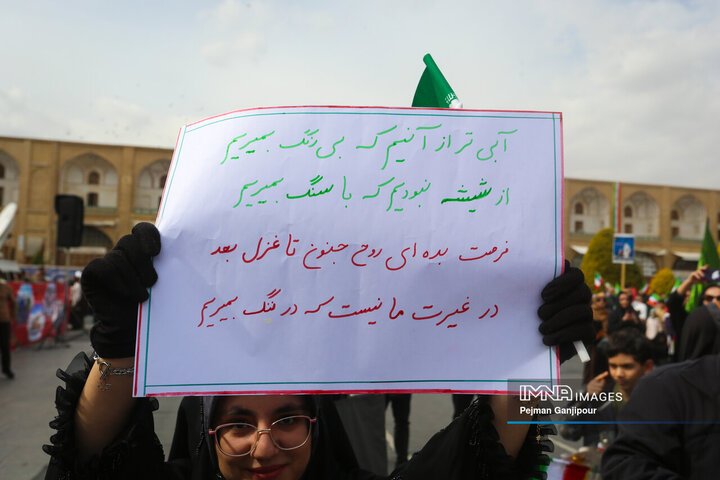 آبی تر از آنیم که بی رنگ بمیریم
از شیشه نبودیم که با سنگ بمیریم
فرصت بده ای روح جنون تا غزل بعد
در غیرت ما نیست که در ننگ بمیریم
IMNA IMAGES
Pejman Ganjipour